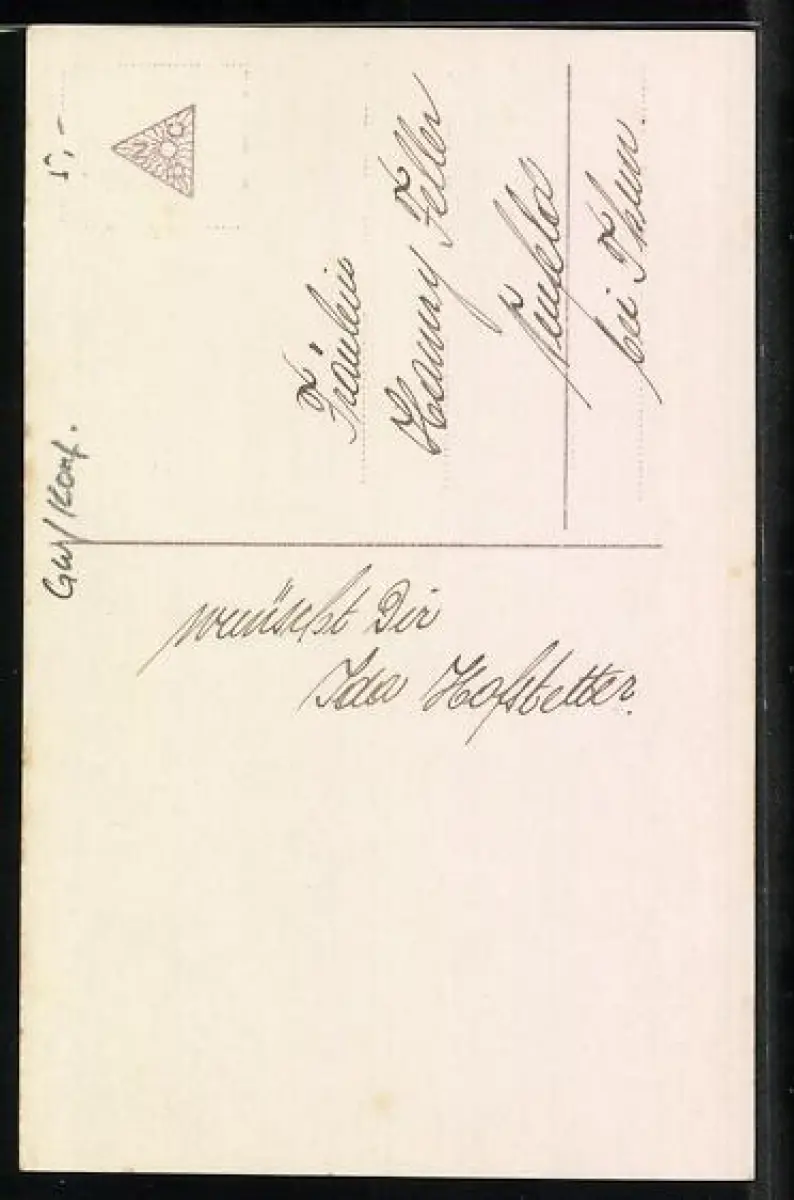 5,-
Fräulein
Hanny Feller
Neufeld
bei Thun.
Gw/Konf.
wünscht Dir
Ida Hofstetter.